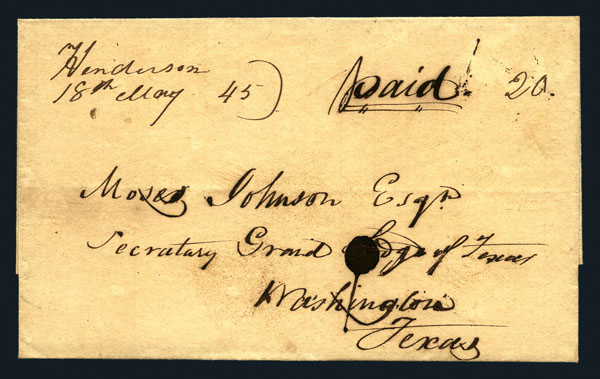 Henderson
18th May 45
paid! 20.
Moses Johnson Esqr
Secratary Grand Lodge of Texas
Washington
Texas